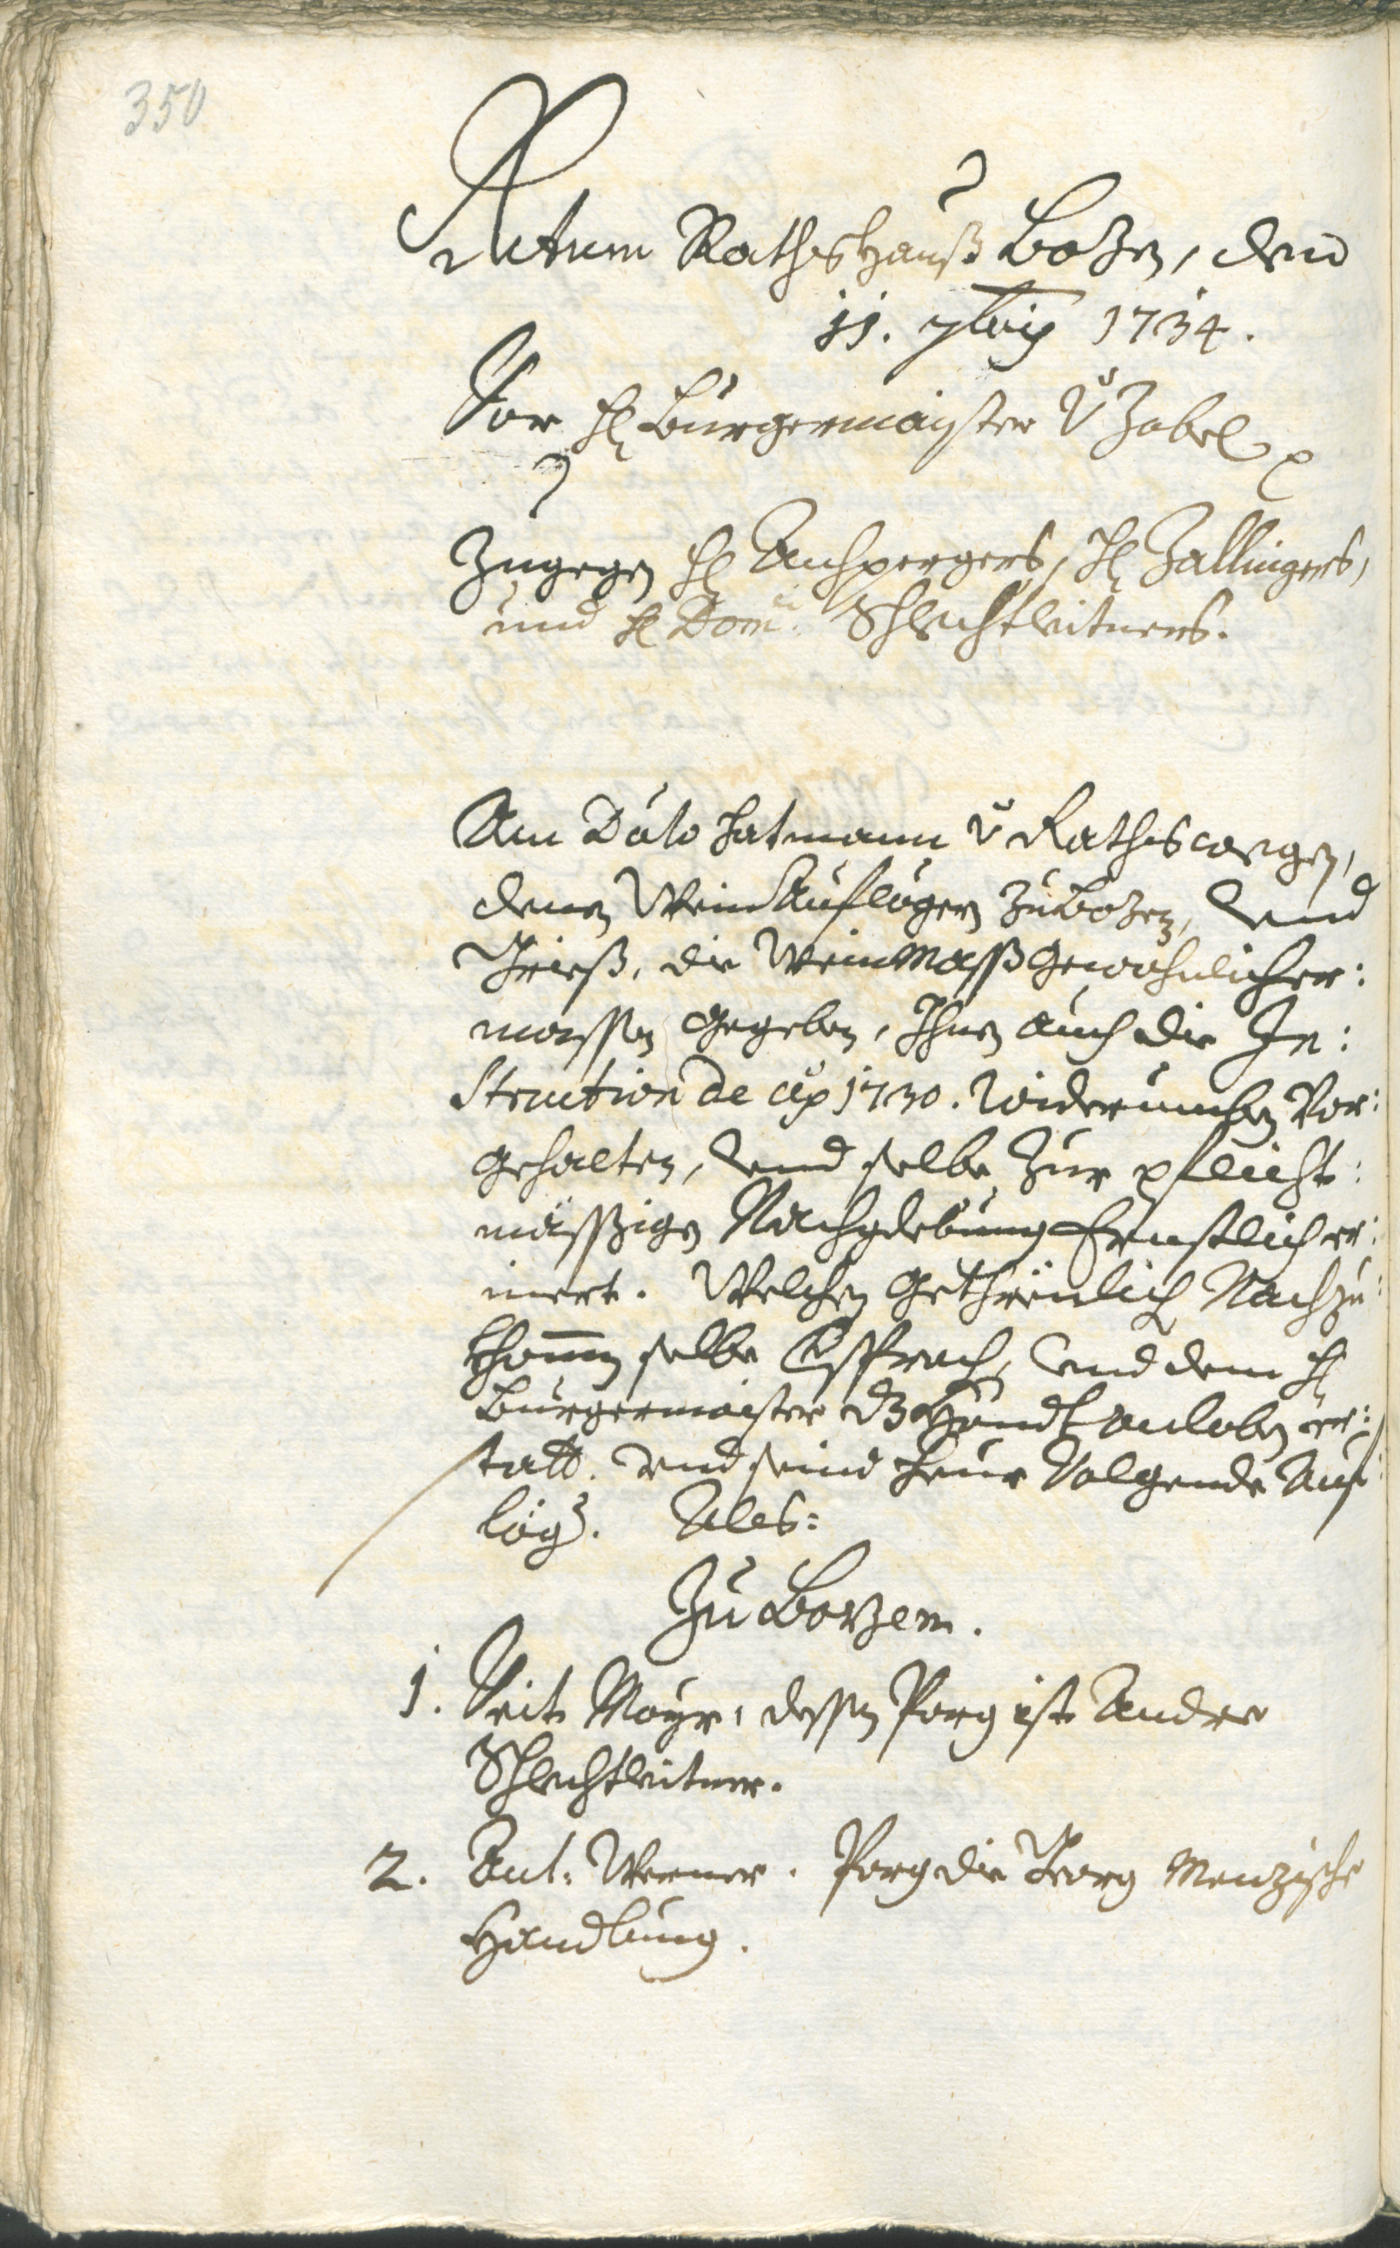 350
Actum Rathshauß Bozen, den
11. 7bris 1734.
Vor H Burgermaister v Zobel p
Zugegen H Aichpergers, H Zallingers,
und H Dom. Schlechtleitners.
Am Dato hat mann v Raths wegen,
denen Wein Aufleger zu Bozen, und
Grieß, die Wein Mass gewöhnlicher:
massen gegeben, Ihnen auch die In:
struction de ao 1730. widerumben vor:
gehalten, und selbe zur pflicht:
mässigen Nachgelebung Ernstlich er:
inert. Welchen gethreulich Nachzu:
khomen selbe Versprochen, und dem H
Burgermaister dz Handt anloben er:
statt. und seind heur Volgende Auf:
löger. Als:
Zu Botzen.
1. Veit Mayr, dessen Porg ist Andre
Schlechtleitner.
2. Ant: Werner. Porg die Georg Menzische
Handlung.